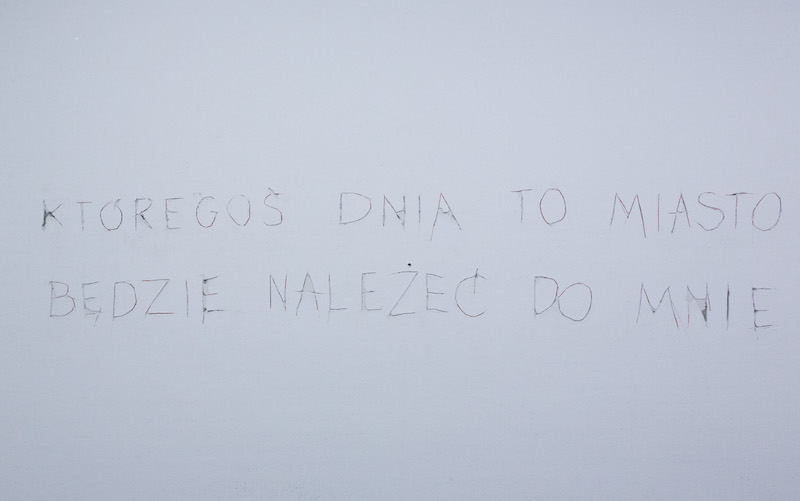 KTÓREGOŚ DNIA TO MIASTO
BĘDZIE NALEŻEĆ DO MNIE